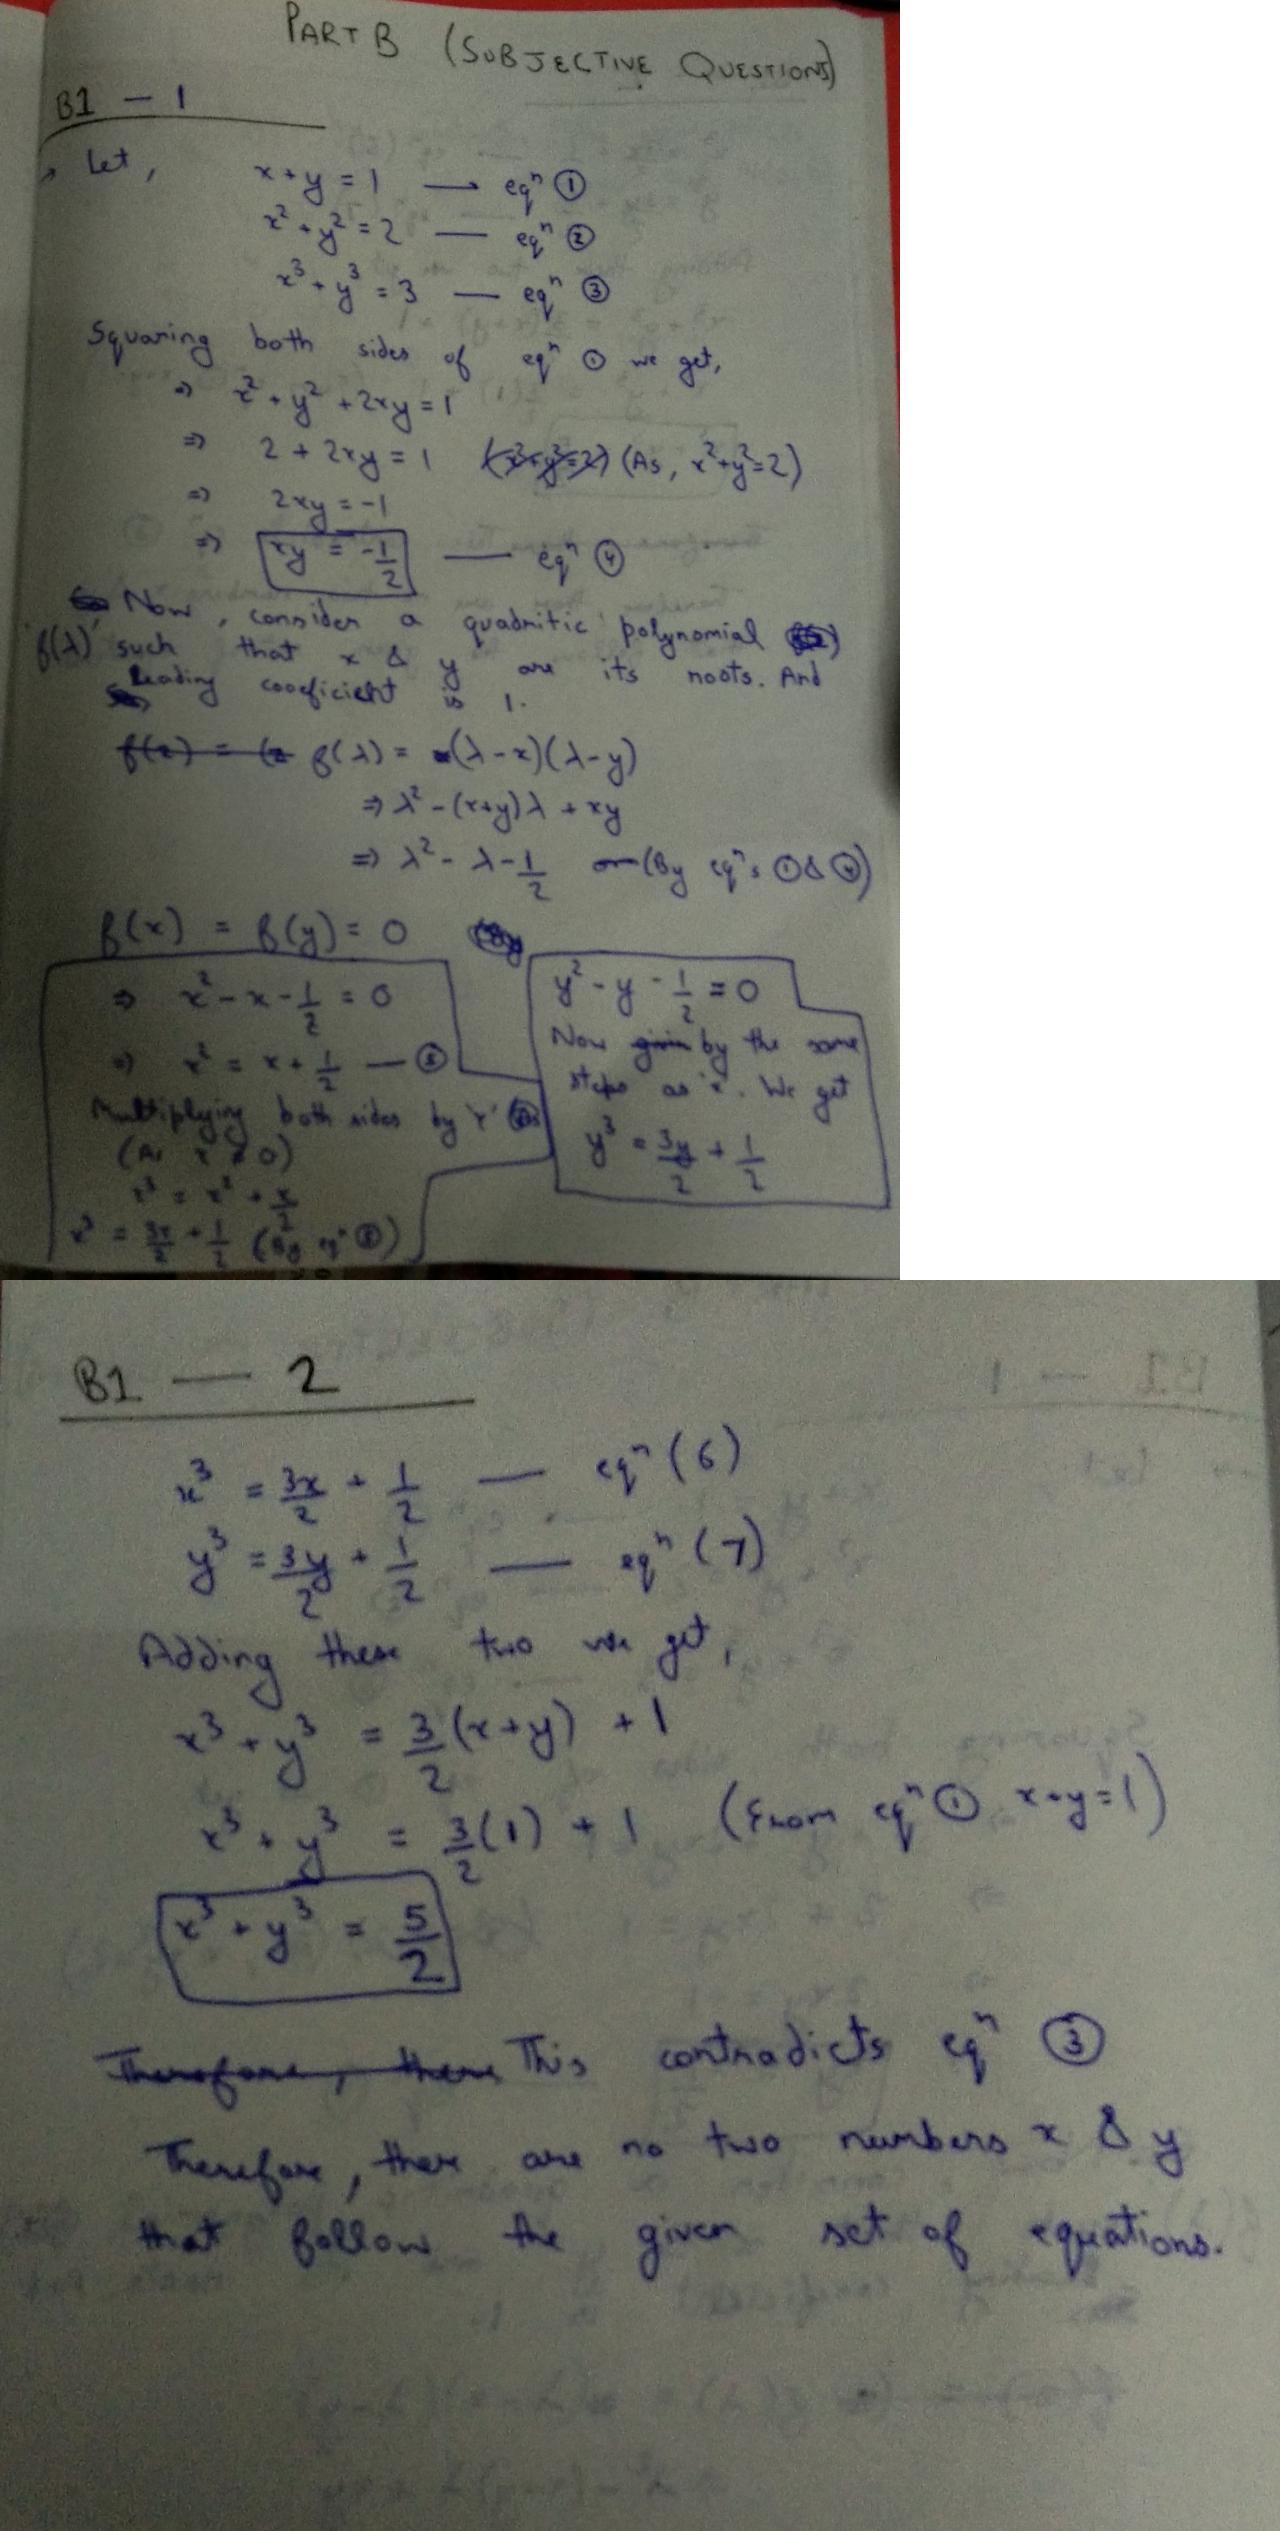 PART B (SUBJECTIVE QUESTIONS)
B1 - 1
→ Let, x + y = 1 → eqⁿ ①
x² + y² = 2 — eqⁿ ②
x³ + y³ = 3 — eqⁿ ③
Squaring both sides of eqⁿ ① we get,
⇒ x² + y² + 2xy = 1
⇒ 2 + 2xy = 1 (x²+y²=2) (As, x²+y²=2)
⇒ 2xy = -1
⇒ xy = -1/2 — eqⁿ ④
Now, consider a quadritic polynomial
'f(λ)' such that x & y are its roots. And
leading cooeficient is 1.
f(z) = (z f(λ) = (λ-x)(λ-y)
⇒ λ² - (x+y)λ + xy
⇒ λ² - λ - 1/2 (By eqⁿs ① & ④)
f(x) = f(y) = 0
⇒ x² - x - 1/2 = 0
⇒ x² = x + 1/2 — ⑤
Multiplying both sides by 'x'
(As x ≠ 0)
x³ = x² + x/2
x³ = 3x/2 + 1/2 (By eqⁿ ⑤)
y² - y - 1/2 = 0
Now given by the same
steps as 'x'. We get
y³ = 3y/2 + 1/2
B1 — 2
x³ = 3x/2 + 1/2 — eqⁿ (6)
y³ = 3y/2 + 1/2 — eqⁿ (7)
Adding these two we get,
x³ + y³ = 3/2 (x+y) + 1
x³ + y³ = 3/2 (1) + 1 (From eqⁿ ① x+y=1)
x³ + y³ = 5/2
Therefore, there This contradicts eqⁿ ③
Therefore, there are no two numbers x & y
that follow the given set of equations.